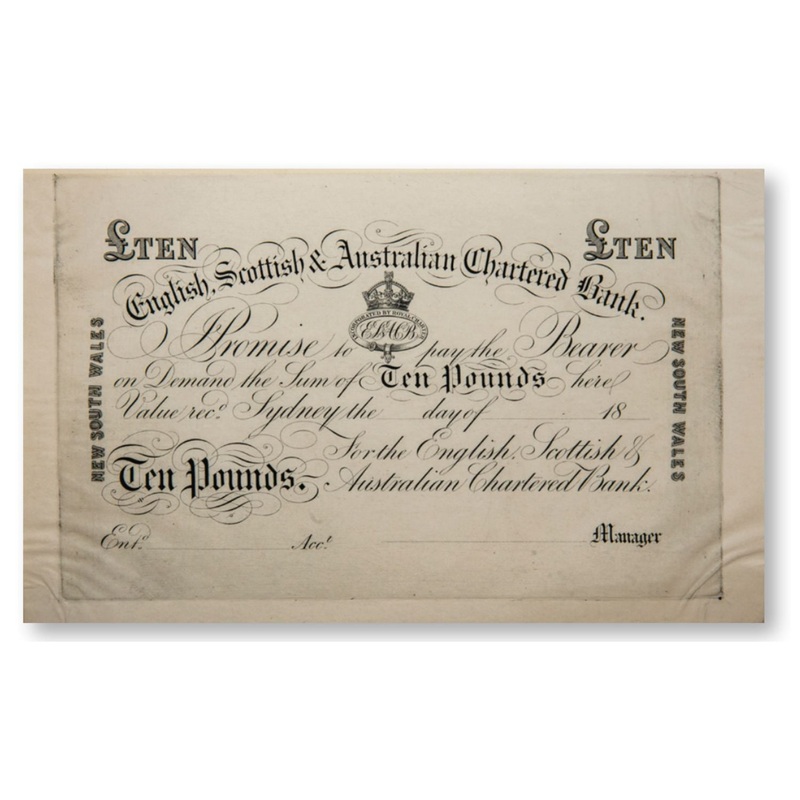 £TEN £TEN
English, Scottish & Australian Chartered Bank.
INCORPORATED BY ROYAL CHARTER
NEW SOUTH WALES
NEW SOUTH WALES
I Promise to pay the Bearer
on Demand the Sum of Ten Pounds here
Value recd. Sydney the day of 18
For the English, Scottish &
Ten Pounds. Australian Chartered Bank.
Entd. Acct. Manager